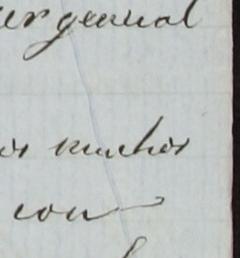 general
muchos
con